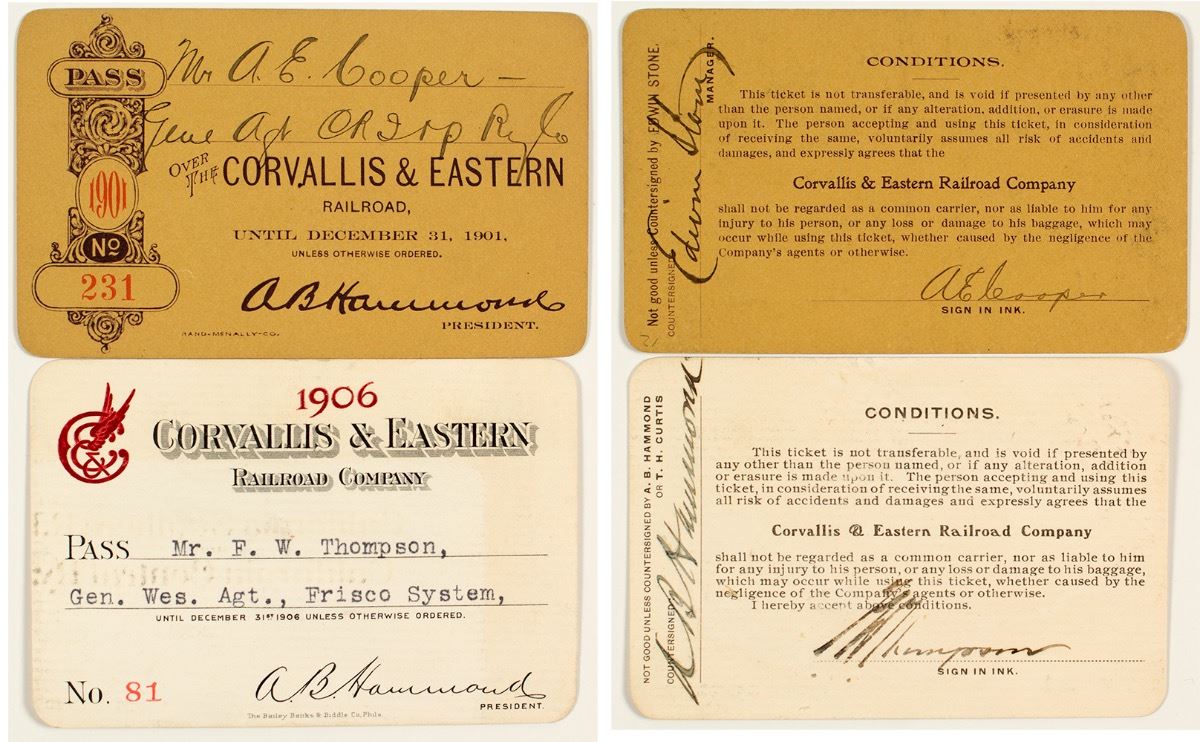 PASS
Mr A. E. Cooper —
Genl Agt C R I & P Ry Co
OVER THE CORVALLIS & EASTERN
RAILROAD,
1901
UNTIL DECEMBER 31, 1901,
UNLESS OTHERWISE ORDERED.
No
231
A B Hammond
PRESIDENT.
RAND-MCNALLY-CO.
Not good unless Countersigned by EDWIN STONE.
COUNTERSIGNED
Edwin Stone
MANAGER.
CONDITIONS.
This ticket is not transferable, and is void if presented by any other
than the person named, or if any alteration, addition, or erasure is made
upon it. The person accepting and using this ticket, in consideration
of receiving the same, voluntarily assumes all risk of accidents and
damages, and expressly agrees that the
Corvallis & Eastern Railroad Company
shall not be regarded as a common carrier, nor as liable to him for any
injury to his person, or any loss or damage to his baggage, which may
occur while using this ticket, whether caused by the negligence of the
Company's agents or otherwise.
A E Cooper
SIGN IN INK.
1906
C&E
CORVALLIS & EASTERN
RAILROAD COMPANY
PASS Mr. F. W. Thompson,
Gen. Wes. Agt., Frisco System,
UNTIL DECEMBER 31ST 1906 UNLESS OTHERWISE ORDERED.
No. 81
A. B. Hammond
PRESIDENT.
The Bailey Banks & Biddle Co, Phila.
NOT GOOD UNLESS COUNTERSIGNED BY A. B. HAMMOND
OR T. H. CURTIS
COUNTERSIGNED
A B Hammond
CONDITIONS.
This ticket is not transferable, and is void if presented by
any other than the person named, or if any alteration, addition
or erasure is made upon it. The person accepting and using this
ticket, in consideration of receiving the same, voluntarily assumes
all risk of accidents and damages and expressly agrees that the
Corvallis & Eastern Railroad Company
shall not be regarded as a common carrier, nor as liable to him
for any injury to his person, or any loss or damage to his baggage,
which may occur while using this ticket, whether caused by the
negligence of the Company's agents or otherwise.
I hereby accept above conditions.
Thompson
SIGN IN INK.